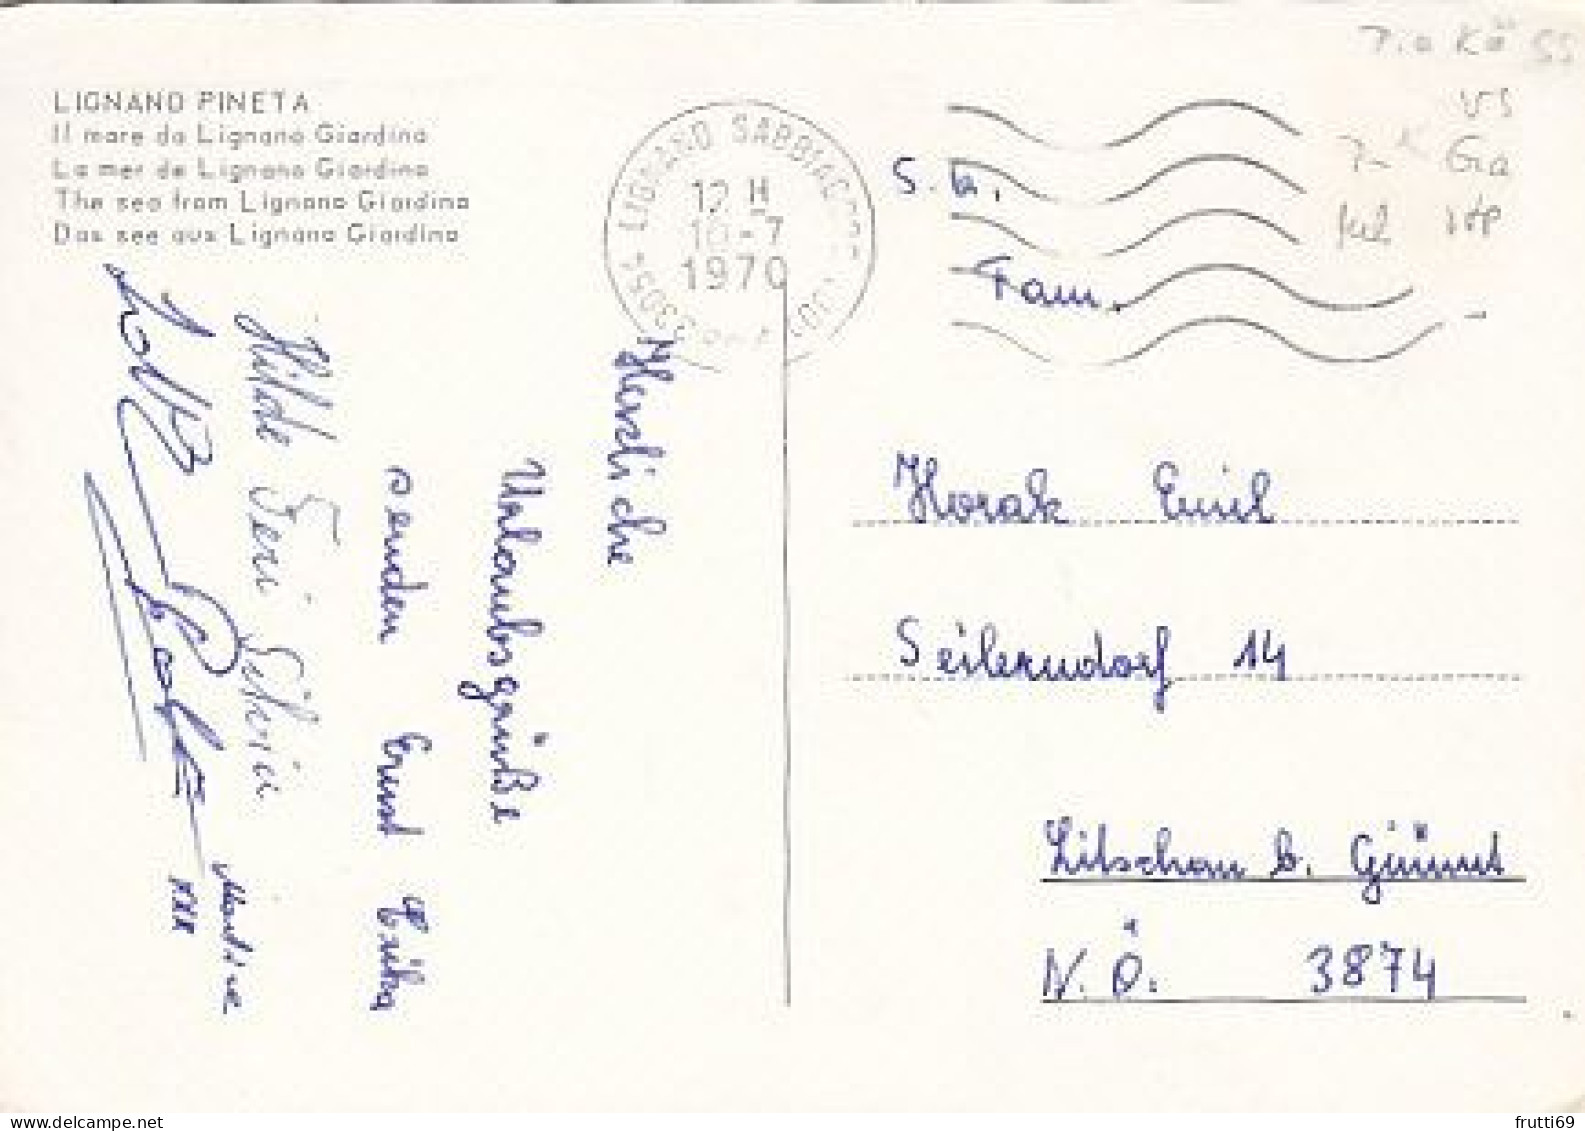 LIGNANO PINETA
Il mare da Lignano Giardino
La mer de Lignano Giardino
The sea from Lignano Giardino
Das see aus Lignano Giardino
LIGNANO SABBIADORO
12 H
10-7
1970
33054
Herzliche
Urlaubsgrüße
senden Ernst Erika
Hilde Feri Silvia
Martine
S. G.
Fam.
Horak Emil
Seilerndorf 14
Litschau b. Gmünd
N. Ö. 3874
frutti69